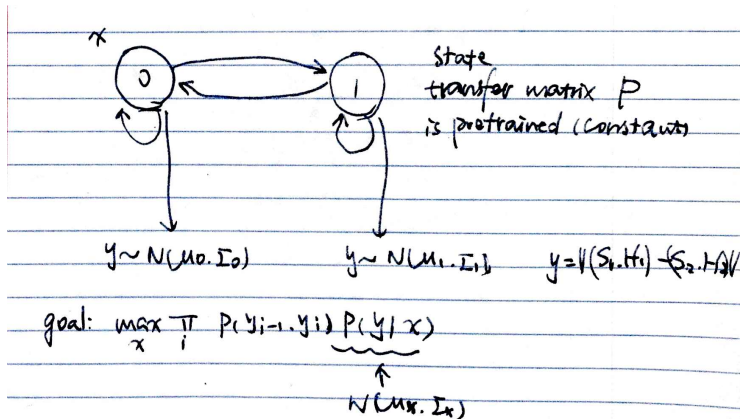 x
0
1
state
transfer matrix P
is pretrained (constant)
y ~ N(μ₀. Σ₀)
y ~ N(μ₁. Σ₁)
y = |(S₁.H₁) - (S₂.H₂)|
goal: max_x ∏_i P(y_{i-1}. y_i) P(y|x)
N(μ_x. Σ_x)